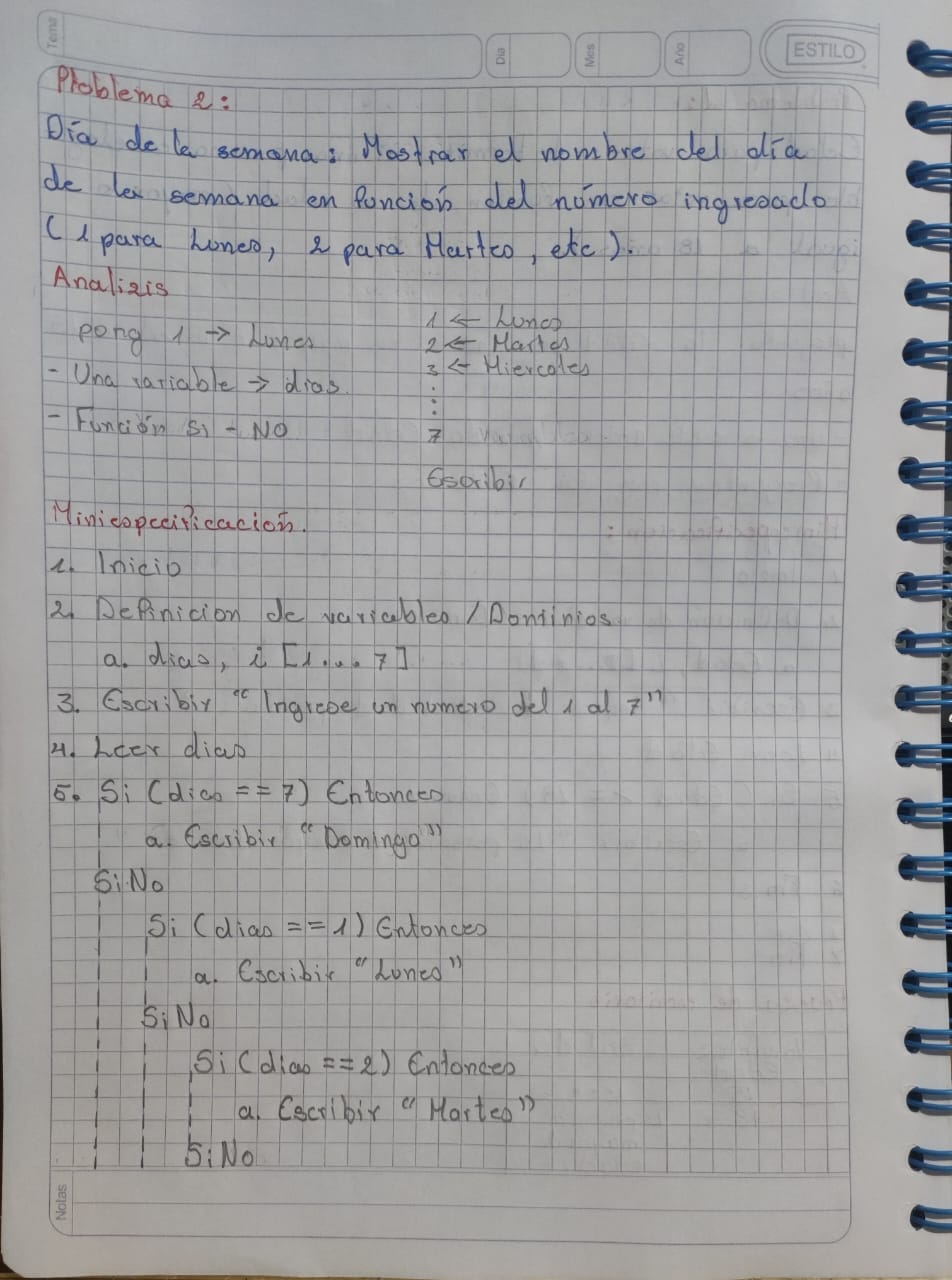 Tema
Día
Mes
Año
ESTILO
Problema 2:
Día de la semana: Mostrar el nombre del día
de la semana en función del número ingresado
(1 para Lunes, 2 para Martes, etc).
Analizis
pong 1 → Lunes
- Una variable → dias.
- Función Si - NO
1 ← Lunes
2 ← Martes
3 ← Miercoles
:
:
7
Escribir
Miniespecificación.
1. Inicio
2. Definicion de variables / Dominios
a. dias, i [1... 7]
3. Escribir "Ingrese un numero del 1 al 7"
4. Leer dias
5. Si (dias == 7) Entonces
a. Escribir "Domingo"
SiNo
Si (dias == 1) Entonces
a. Escribir "Lunes"
SiNo
Si (dias == 2) Entonces
a. Escribir "Martes"
SiNo
Notas